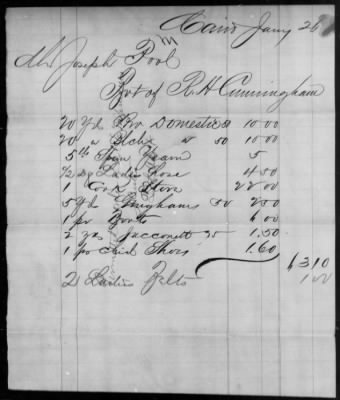 Cairo Jany 26
M
Mr Joseph Pool
Bot of R. H Cunningham
20 Yds Bro Domestic 50 10.00
20 " Blch " " 50 10.00
5 lb Spun Yearn 5
1/2 Dz Ladies Hose 4 50
1 Cook Stove 22.00
5 Yd Ginghams 50 2 50
1 pr Boots 6 00
2 yds Jacconett 75 1.50
1 pr Child Shoes 1.60
6310
2 Ladies Felts 1 00